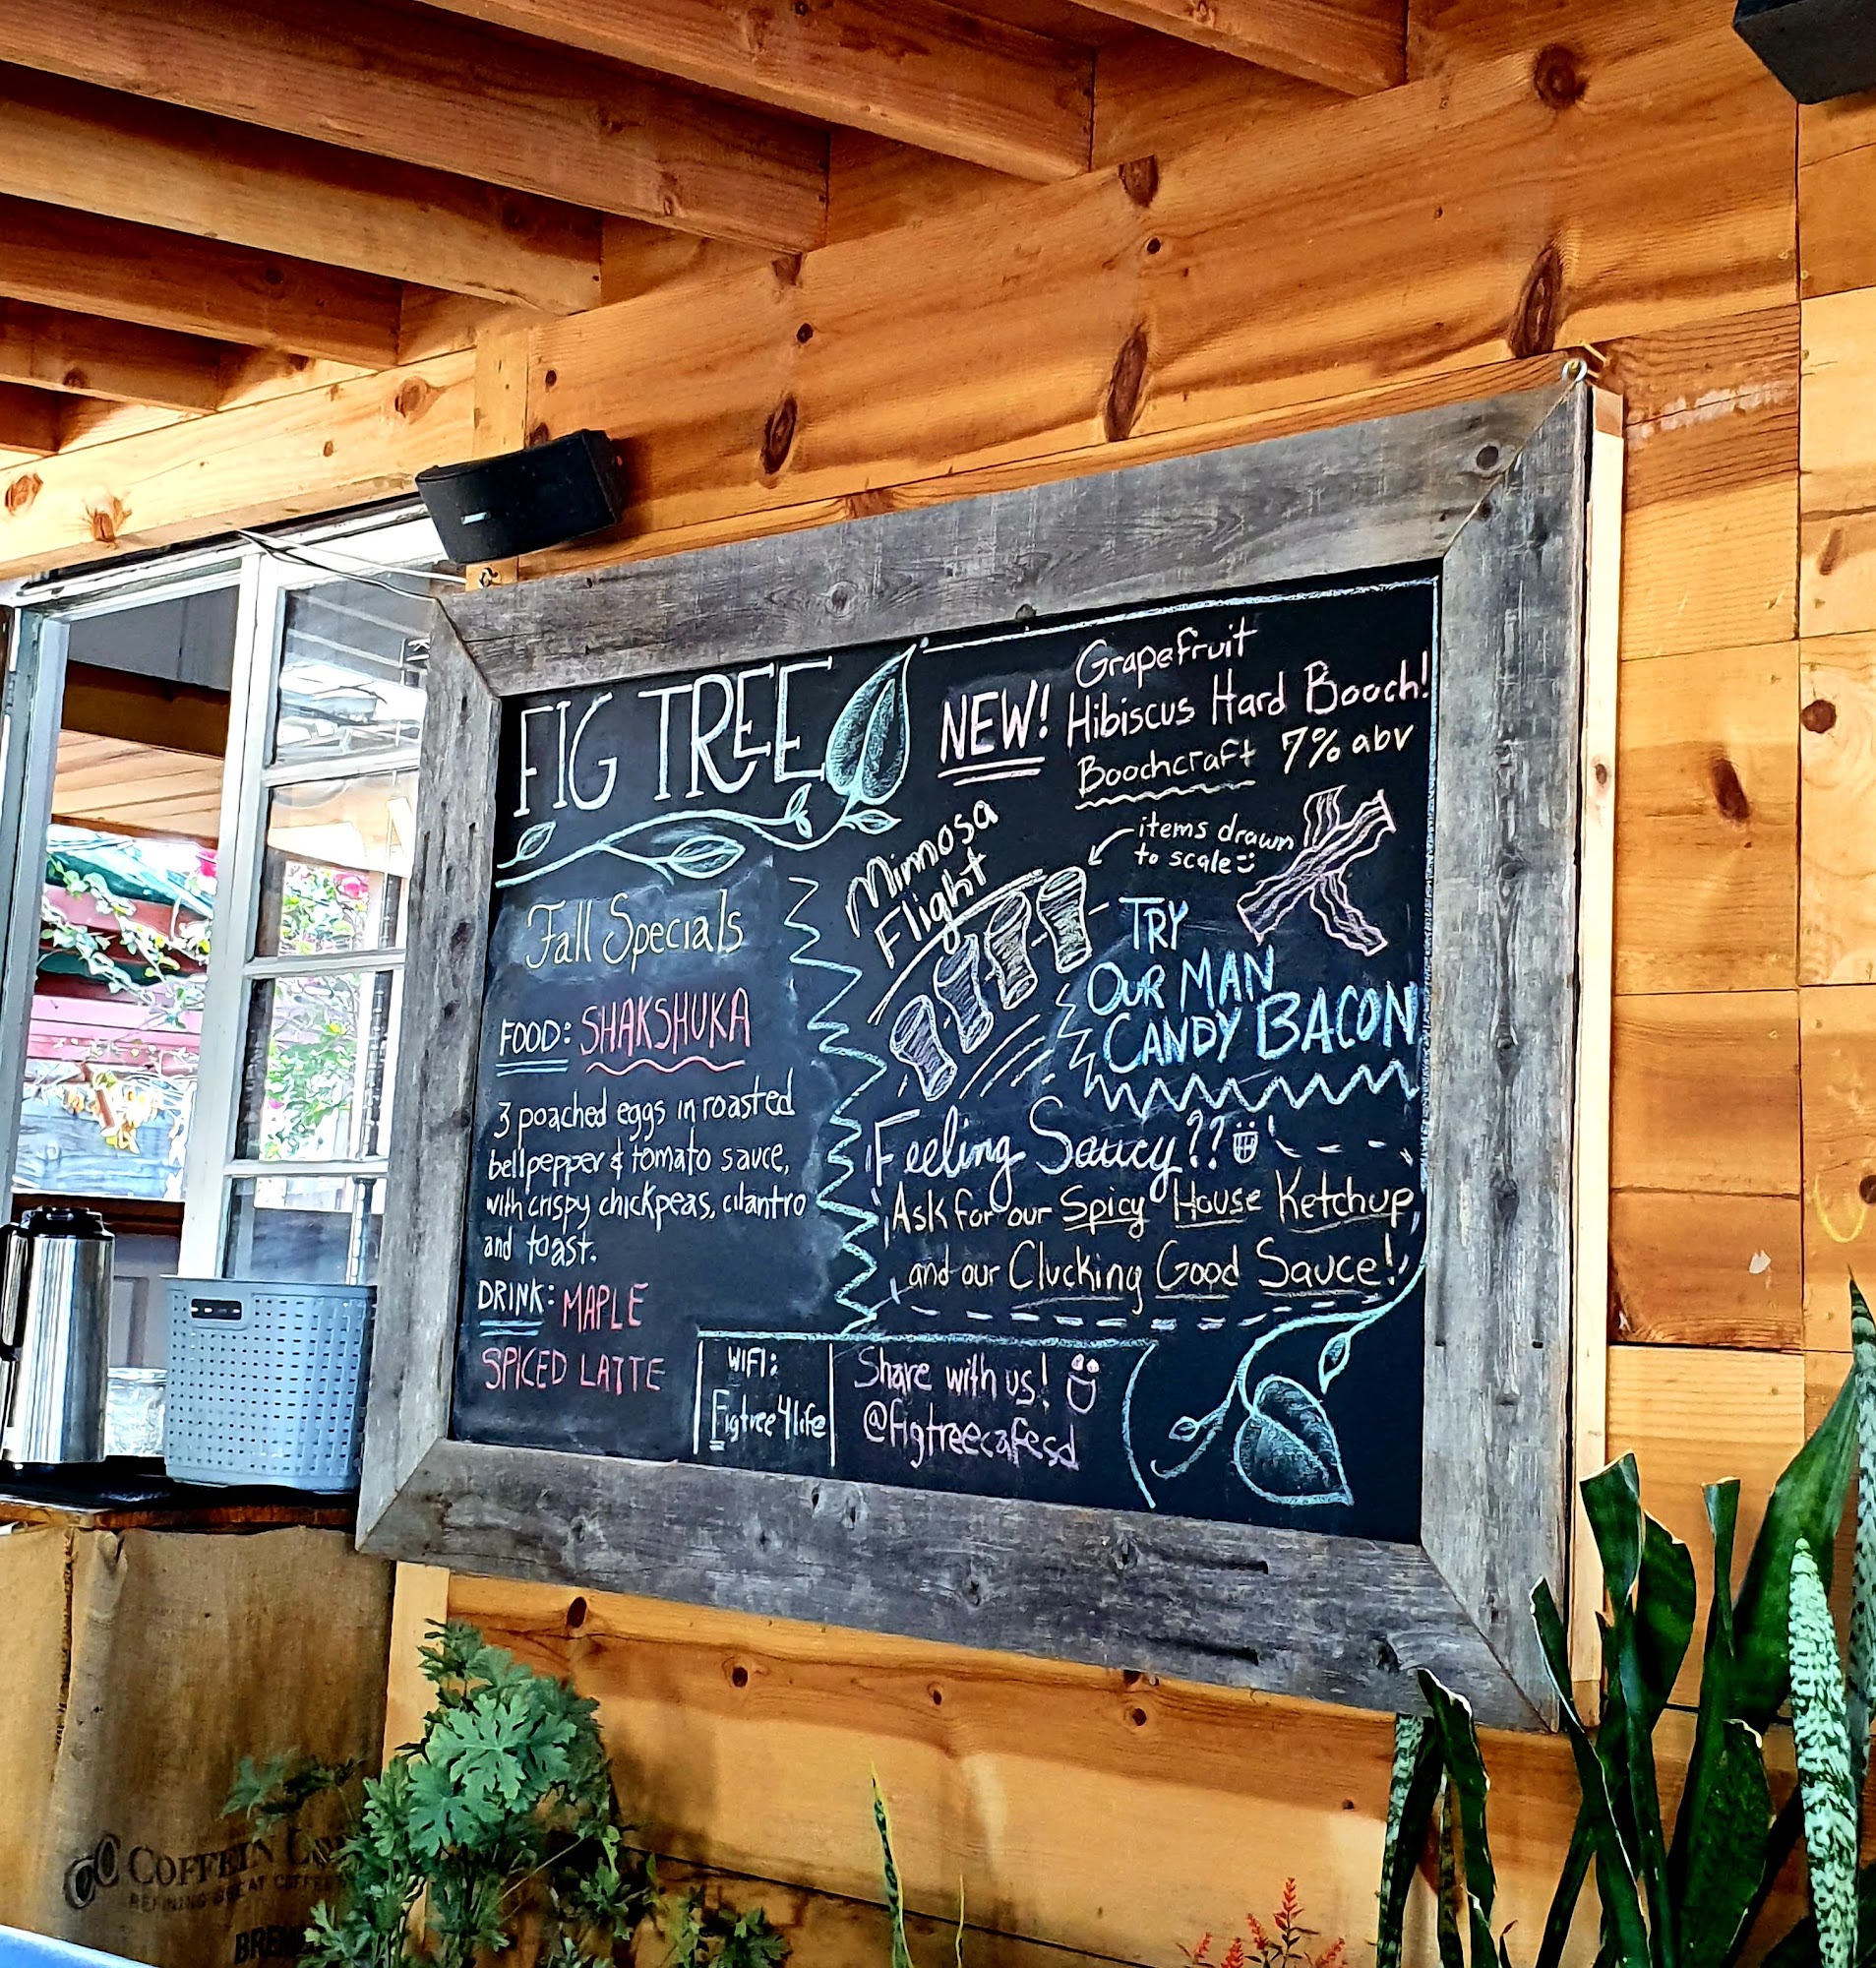 FIG TREE
Fall Specials
FOOD: SHAKSHUKA
3 poached eggs in roasted
bell pepper & tomato sauce,
with crispy chickpeas, cilantro
and toast.
DRINK: MAPLE
SPICED LATTE
NEW!
Grapefruit
Hibiscus Hard Booch!
Boochcraft 7% abv
Mimosa
Flight
items drawn
to scale
TRY
OUR MAN
CANDY BACON
Feeling Saucy??
Ask for our Spicy House Ketchup,
and our Clucking Good Sauce!
WIFI:
Figtree4life
Share with us!
@figtreecafesd
COFFEIN
REFINING GREAT COFFEE